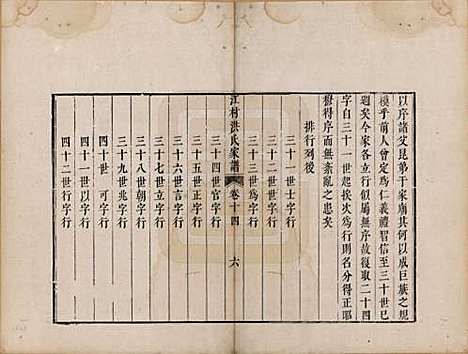 以序諸父昆弟于家廟其何以成巨族之規
模乎前人曾定為仁義禮智信至三十世已
週矣今家各立行似屬無序故復取二十四
字自三十一世起挨次為行則名分得正昭
穆得序而無紊亂之患矣
排行列後
三十一世士字行
三十三世為字行
江村洪氏家譜
卷十四
六
三十四世官字行
三十五世正字行
三十六世言字行
三十七世立字行
三十八世朝字行
三十九世兆字行
四十世可字行
四十一世以字行
四十二世行字行